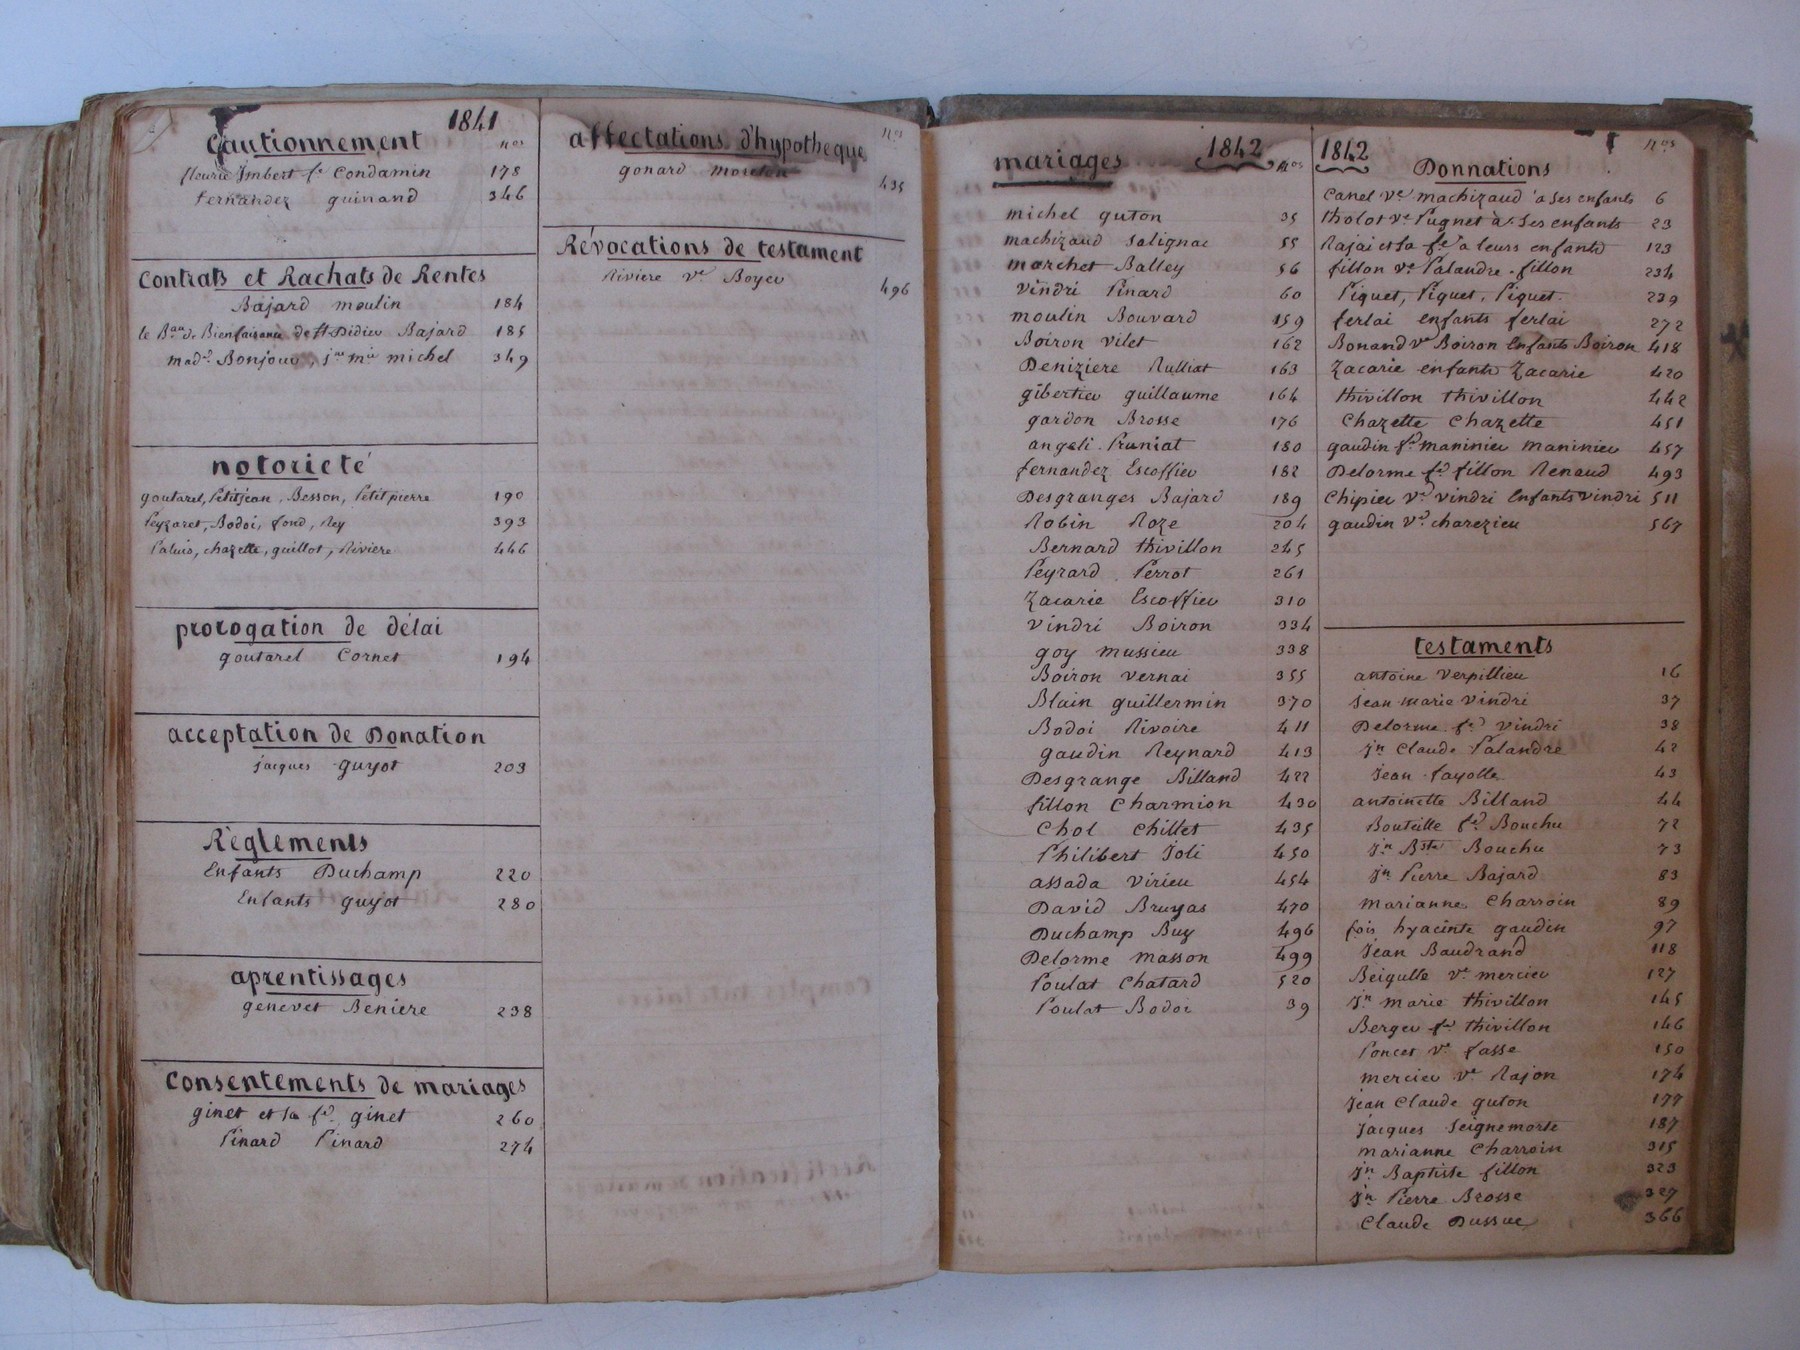 1841
Cautionnement nos
fleurie Imbert fe Condamin 178
fernandez guinand 346
Contrats et Rachats de Rentes
Bajard moulin 184
le Bau de Bienfaisance de St Didier Bajard 185
madle Bonjour, jne mie michel 349
notorieté
goutarel, Petitjean, Besson, Petitpierre 190
Peyzaret, Bodoi, fond, Rey 393
Paluis, chazelle, guillot, Riviere 446
prorogation de délai
goutarel Cornet 194
acceptation de Donation
jacques guyot 203
Règlements
Enfants Duchamp 220
Enfants guyot 280
aprentissages
genevet Beniere 238
Consentements de mariages
ginet et sa fe ginet 260
Pinard Pinard 274
affectations d'hypotheque nos
gonard 435
Révocations de testament
Riviere ve Boyer 496
mariages 1842 nos
michel guton 35
machizaud salignac 55
marchet Balley 56
vindri Pinard 60
moulin Bouvard 159
Boiron vilet 162
Deniziere Rulliat 163
gibertier guillaume 164
gardon Brosse 176
angeli Pruniat 180
fernandez Escoffier 182
Desgranges Bajard 189
Robin Roze 204
Bernard thivillon 245
Peyrard Perrot 261
Zacarie Escoffier 310
vindri Boiron 334
goy mussieu 338
Boiron vernai 355
Blain guillermin 370
Bodoi Rivoire 411
gaudin Reynard 413
Desgrange Billand 422
fillon Charmion 430
Chol Chillet 435
Philibert Joli 450
assada virieu 454
David Bruyas 470
Duchamp Buy 496
Delorme masson 499
Poulat Chatard 520
Poulat Bodoi 39
1842 Donnations nos
Canel ve machizaud à ses enfants 6
tholot ve Pugnet à ses enfants 23
Rajai et sa fe à leurs enfants 123
fillon ve Palandre fillon 234
Piquet, Piquet, Piquet. 239
ferlai enfants ferlai 272
Bonand ve Boiron Enfants Boiron 418
Zacarie enfants Zacarie 420
thivillon thivillon 442
Chazette Chazette 451
gaudin fe maninieu maninieu 457
Delorme fe fillon Renaud 493
Chipier ve vindri Enfants vindri 511
gaudin ve charezieu 567
testaments
antoine verpillieu 16
Jean marie vindri 37
Delorme fe vindri 38
Jn Claude Palandre 42
Jean fayolle 43
antoinette Billand 44
Bouteille fe Bouchu 72
Jn Bste Bouchu 73
Jn Pierre Bajard 83
marianne Charroin 89
fois hyacinte gaudin 97
Jean Baudrand 118
Beigulle ve mercier 127
Jn marie thivillon 145
Berger fe thivillon 146
Poncet ve fasse 150
mercier ve Rajon 174
Jean Claude guton 177
Jacques Seignemorte 187
marianne Charroin 315
Jn Baptiste fillon 323
Jn Pierre Brosse 327
Claude Dussuc 366